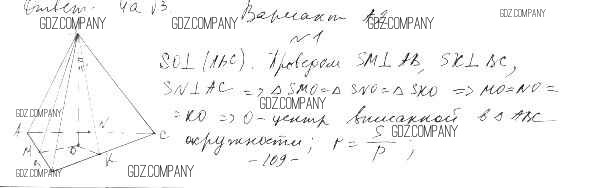 Ответ. 4a√3.
Вариант А2
№1
SO⊥(ABC). Проведем SM⊥AB, SK⊥BC,
SN⊥AC => △SMO=△SNO=△SKO => MO=NO=
=KO => O-центр вписанной в △ABC
окружности; r = S/p ;
-109-
A
M
a
O
N
K
C
GDZ.COMPANY
GDZ.COMPANY
GDZ.COMPANY
GDZ.COMPANY
GDZ.COMPANY
GDZ.COMPANY
GDZ.COMPANY
GDZ.COMPANY
GDZ.COMPANY